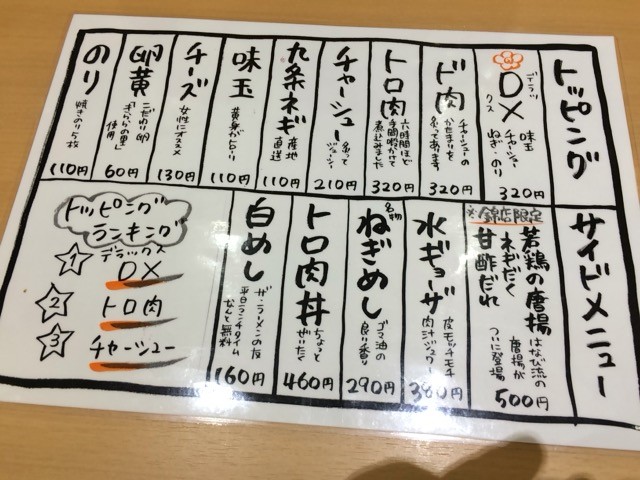 トッピング
DX
デラックス
味玉
チャーシュー
ねぎ・のり
320円
ド肉
チャーシューの
かたまりを
炙ってあります
320円
トロ肉
六時間ほど
手間暇かけて
煮込みました
320円
チャーシュー
炙って
ジューシー
210円
九条ネギ
産地
直送
110円
味玉
黄身がトロリ
110円
チーズ
女性にオススメ
130円
卵黄
こだわり卵
「きららの里」
使用
60円
のり
焼きのり5枚
110円
サイドメニュー
※錦店限定
若鶏の唐揚
ネギだく
甘酢だれ
はなび流の
唐揚が
ついに登場
500円
水ギョーザ
皮モッチモチ
肉汁ジュワー
380円
名物
ねぎめし
ゴマ油の
良い香り
290円
トロ肉丼
ちょっと
ぜいたく
460円
白めし
ザ・ラーメンの友
平日ランチタイム
なんと無料
160円
トッピング
ランキング
1 デラックス
DX
2 トロ肉
3 チャーシュー